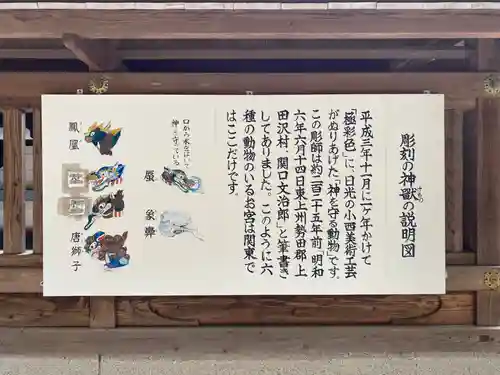 彫刻の神獣の説明図
けもの
平成三年十一月に一ケ年かけて
「極彩色」に、日光の小西美術工芸
がぬりあげた「神を守る動物」です。
この彫師は約二百二十五年前「明和
六年六月十四日東上州勢田郡上
田沢村、関口文治郎」と筆書き
してありました。このように六
種の動物のいるお宮は関東で
はここだけです。
口から水をはいて
神を守っている
蜃
象鼻
鳳凰
唐獅子